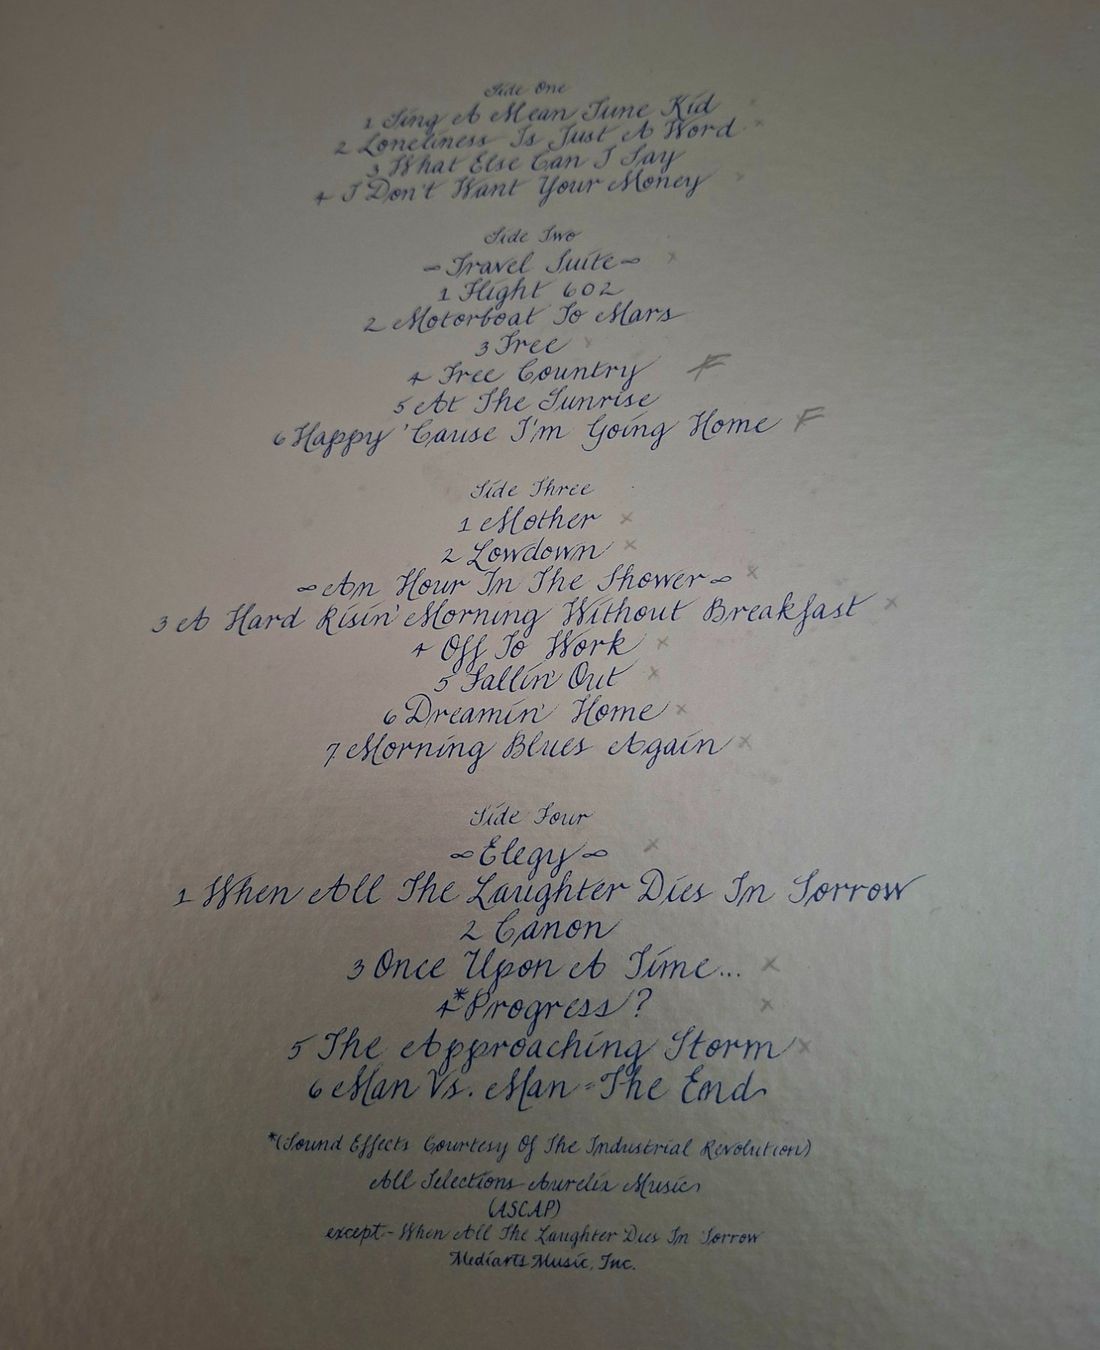 Side One
1 Sing A Mean Tune Kid
2 Loneliness Is Just A Word x
3 What Else Can I Say
4 I Don't Want Your Money x
Side Two
~Travel Suite~ x
1 Flight 602
2 Motorboat To Mars
3 Free x
4 Free Country F
5 At The Sunrise
6 Happy 'Cause I'm Going Home F
Side Three
1 Mother x
2 Lowdown x
~An Hour In The Shower~ x
3 A Hard Risin' Morning Without Breakfast x
4 Off To Work x
5 Fallin' Out x
6 Dreamin' Home x
7 Morning Blues Again x
Side Four
~Elegy~ x
1 When All The Laughter Dies In Sorrow
2 Canon
3 Once Upon A Time... x
4 *Progress? x
5 The Approaching Storm x
6 Man Vs. Man-The End
*(Sound Effects Courtesy Of The Industrial Revolution)
All Selections Aurelix Music
(ASCAP)
except-When All The Laughter Dies In Sorrow
Mediarts Music, Inc.